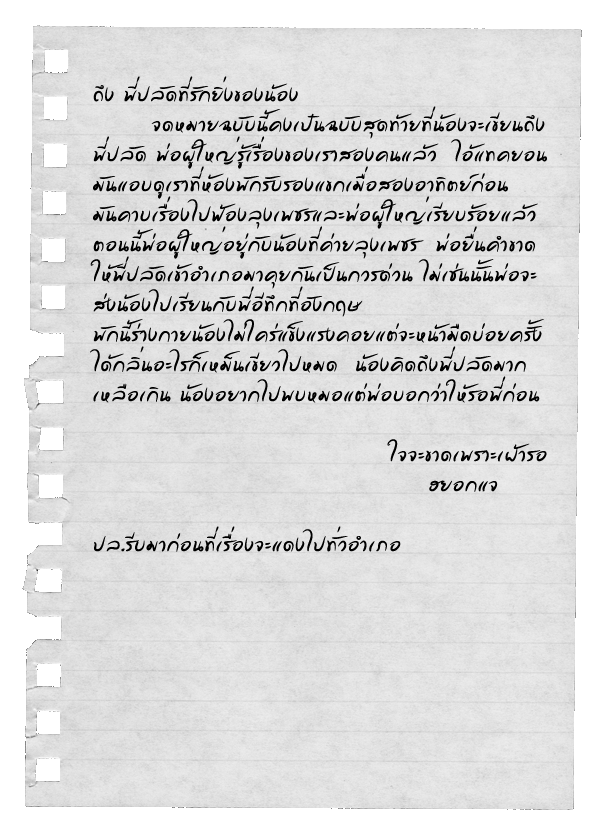 ถึง พี่ปลัดที่รักยิ่งของน้อง
จดหมายฉบับนี้คงเป็นฉบับสุดท้ายที่น้องจะเขียนถึง
พี่ปลัด พ่อผู้ใหญ่รู้เรื่องของเราสองคนแล้ว ไอ้แทคยอน
มันแอบดูเราที่ห้องพักรับรองแขกเมื่อสองอาทิตย์ก่อน
มันคาบเรื่องไปฟ้องลุงเพชรและพ่อผู้ใหญ่เรียบร้อยแล้ว
ตอนนี้พ่อผู้ใหญ่อยู่กับน้องที่ค่ายลุงเพชร พ่อยื่นคำขาด
ให้พี่ปลัดเข้าอำเภอมาคุยกันเป็นการด่วน ไม่เช่นนั้นพ่อจะ
ส่งน้องไปเรียนกับพี่อีทึกที่อังกฤษ
พักนี้ร่างกายน้องไม่ใคร่แข็งแรงคอยแต่จะหน้ามืดบ่อยครั้ง
ได้กลิ่นอะไรก็เหม็นเขียวไปหมด น้องคิดถึงพี่ปลัดมาก
เหลือเกิน น้องอยากไปพบหมอแต่พ่อบอกว่าให้รอพี่ก่อน
ใจจะขาดเพราะเฝ้ารอ
ฮยอกแจ
ปล.รีบมาก่อนที่เรื่องจะแดงไปทั่วอำเภอ